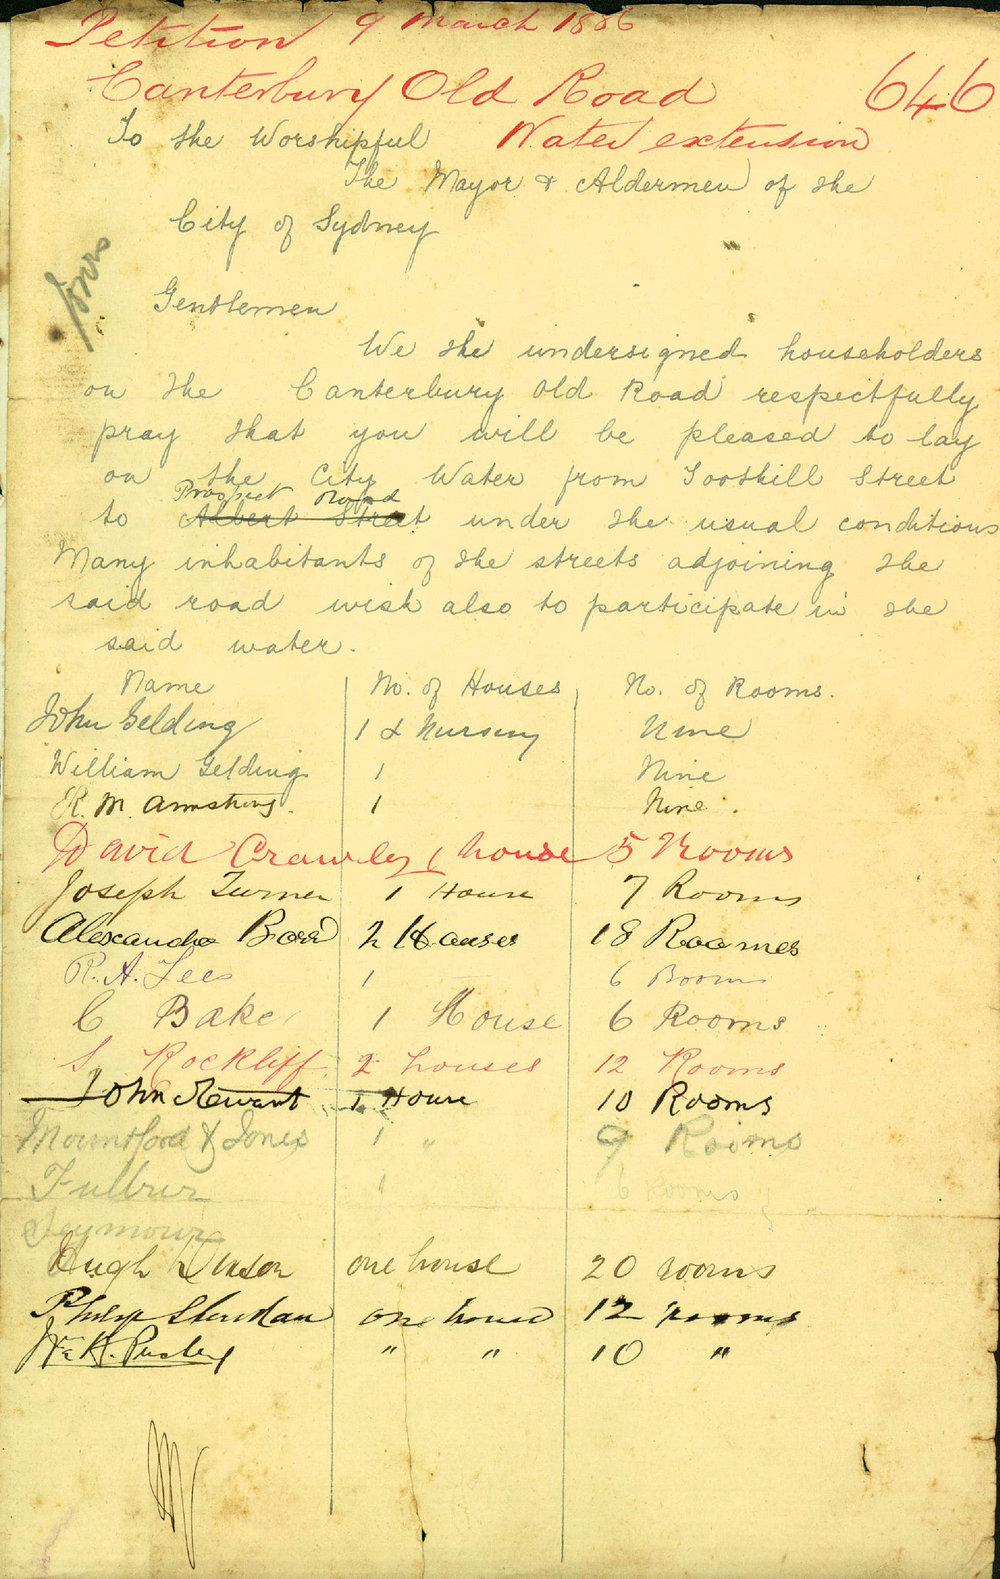 Petition 9 March 1886
Canterbury Old Road 646
To the Worshipful Water extension
The Mayor & Aldermen of the
City of Sydney
Gentlemen
We the undersigned householders
on the Canterbury Old Road respectfully
pray that you will be pleased to lay
on the City Water from Toothill Street
Prospect Road
to Albert Street under the usual conditions
Many inhabitants of the streets adjoining the
said road wish also to participate in the
said water.
Name No. of Houses No. of Rooms.
John Gelding 1 & Nursery Nine
William Gelding 1 Nine
R. M. Armstrong. 1 Nine.
David Crawley 1 house 5 Rooms
Joseph Turner 1 House 7 Rooms
Alexander 2 Houses 18 Roomes
R. A. Lees 1 6 Rooms
C Bake 1 House 6 Rooms
S. Rockliff. 2 houses 12 Rooms
John Stewart 1 House 10 Rooms
Mountford & Jones 1 " 9 Rooms
1 " 6 rooms
Seymour
Hugh one house 20 rooms
Philip Sheridan one house 12 rooms
" " 10 "